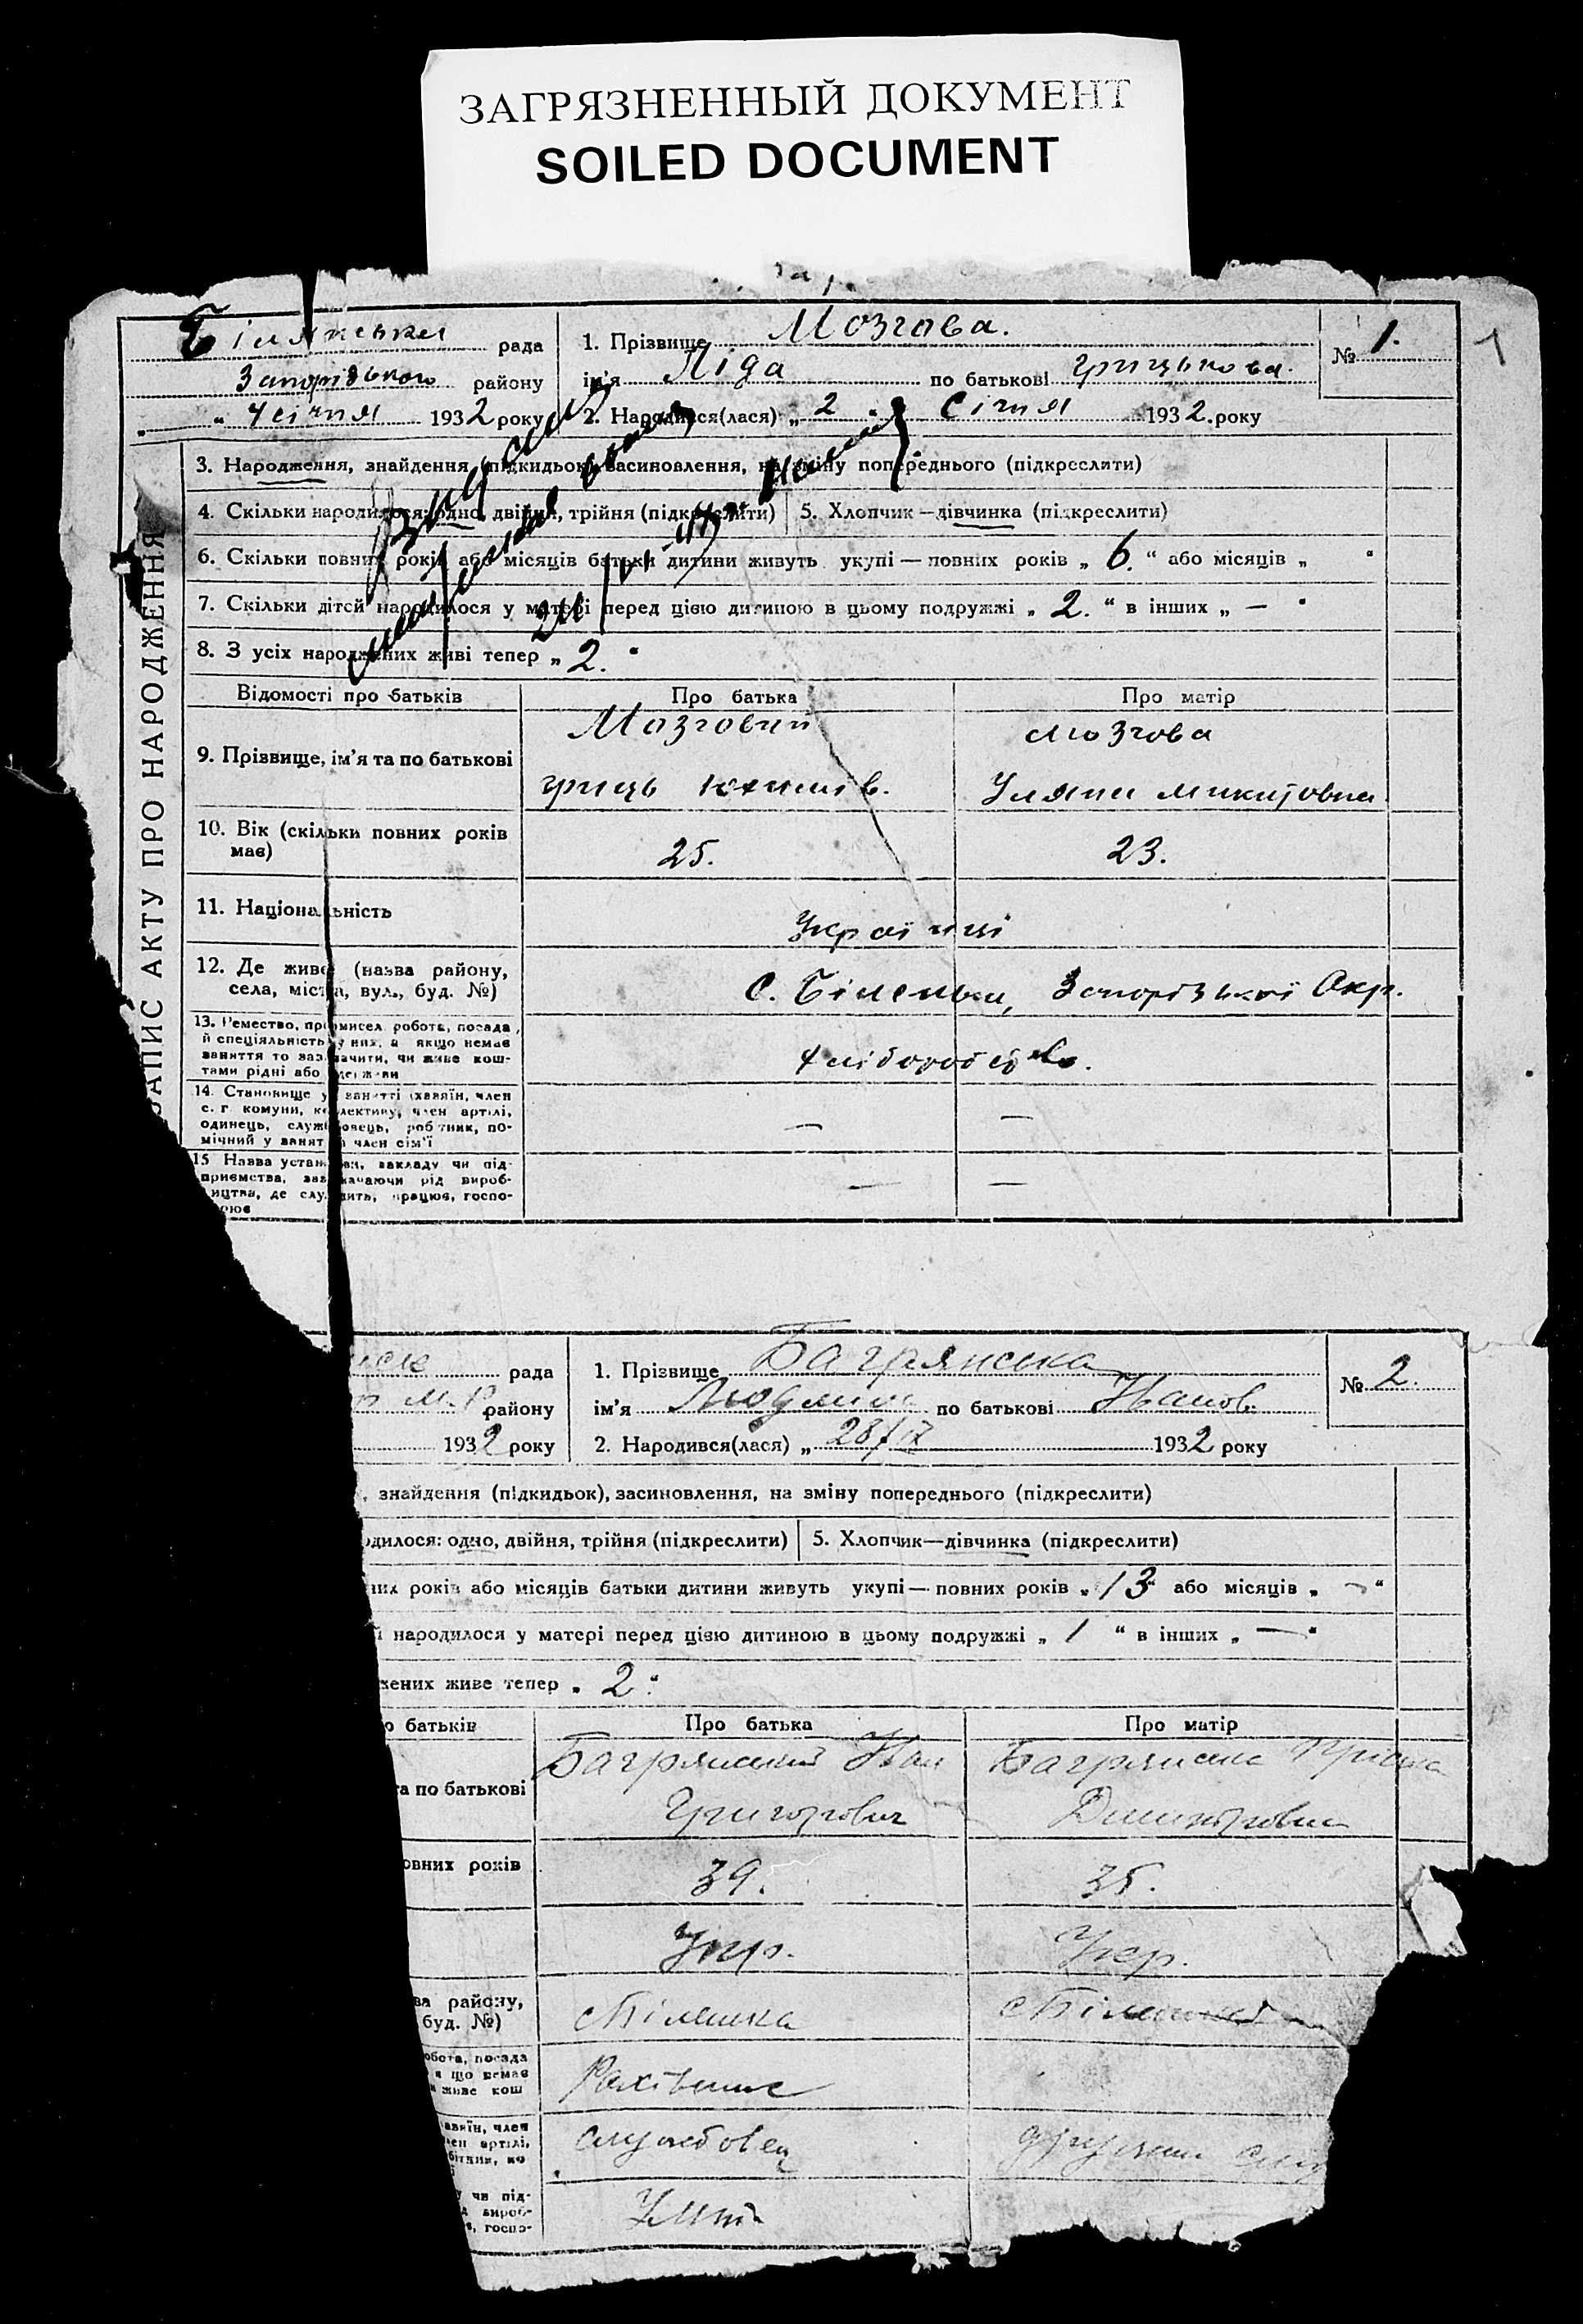 ЗАГРЯЗНЕННЫЙ ДОКУМЕНТ
SOILED DOCUMENT
Білянська рада
Запорізького району
" 4 січня 1932 року
1. Прізвище Мозгова.
ім'я Ліда по батькові Грицькова.
2. Народився(лася) „ 2 " Січня 1932. року
№ 1.
1
ЗАПИС АКТУ ПРО НАРОДЖЕННЯ
3. Народження, знайдення (підкидьок), засиновлення, на зміну попереднього (підкреслити)
4. Скільки народилося: одно, двійня, трійня (підкреслити) 5. Хлопчик—дівчинка (підкреслити)
6. Скільки повних років або місяців батьки дитини живуть укупі — повних років „ 6. " або місяців „ "
7. Скільки дітей народилося у матері перед цією дитиною в цьому подружжі „ 2. " в інших „ — "
8. З усіх народжених живі тепер „ 2. "
Відомості про батьків Про батька Про матір
9. Прізвище, ім'я та по батькові
Мозговий
Гриць
Мозгова
Уляна Микитовна
10. Вік (скільки повних років має) 25. 23.
11. Національність Українці
12. Де живе (назва району, села, міста, вул., буд. №) С. Біленьки, Запорізької Окр.
13. Ремество, промисел, робота, посада й спеціяльність у них, а якщо немає
заняття то зазначити, чи живе кош-
тами рідні або держави
Хліборобство.
14. Становище у занятті (хазяїн, член
с. г комуни, колективу, член артілі,
одинець, службовець, робітник, по-
мічний у занятті член сім'ї
— —
15 Назва установи, закладу чи під-
приємства, зазначаючи рід вироб-
ництва, де служить, працює, госпо-
рює
— —
рада
М. Р. району
1932 року
1. Прізвище Багрянська
ім'я Людміла по батькові Іванов.
2. Народився(лася) „ 28/IX 1932 року
№ 2.
, знайдення (підкидьок), засиновлення, на зміну попереднього (підкреслити)
одилося: одно, двійня, трійня (підкреслити) 5. Хлопчик—дівчинка (підкреслити)
них років або місяців батьки дитини живуть укупі — повних років „ 13 " або місяців „ — "
й народилося у матері перед цією дитиною в цьому подружжі „ 1 " в інших „ — "
жених живе тепер „ 2 "
о батьків Про батька Про матір
та по батькові
Багрянський Іван
Григорович
Багрянська Пріська
Дмитровна
овних років 39. 35.
Укр. Укр.
ва району,
буд. №)
с Біленька с Біленька
обота, посада
що немає
живе кош
Рахівник
азяїн, член
лен артілі,
бітник, по
службовец дружина служ
у чи під-
д вироб-
є, госпо-